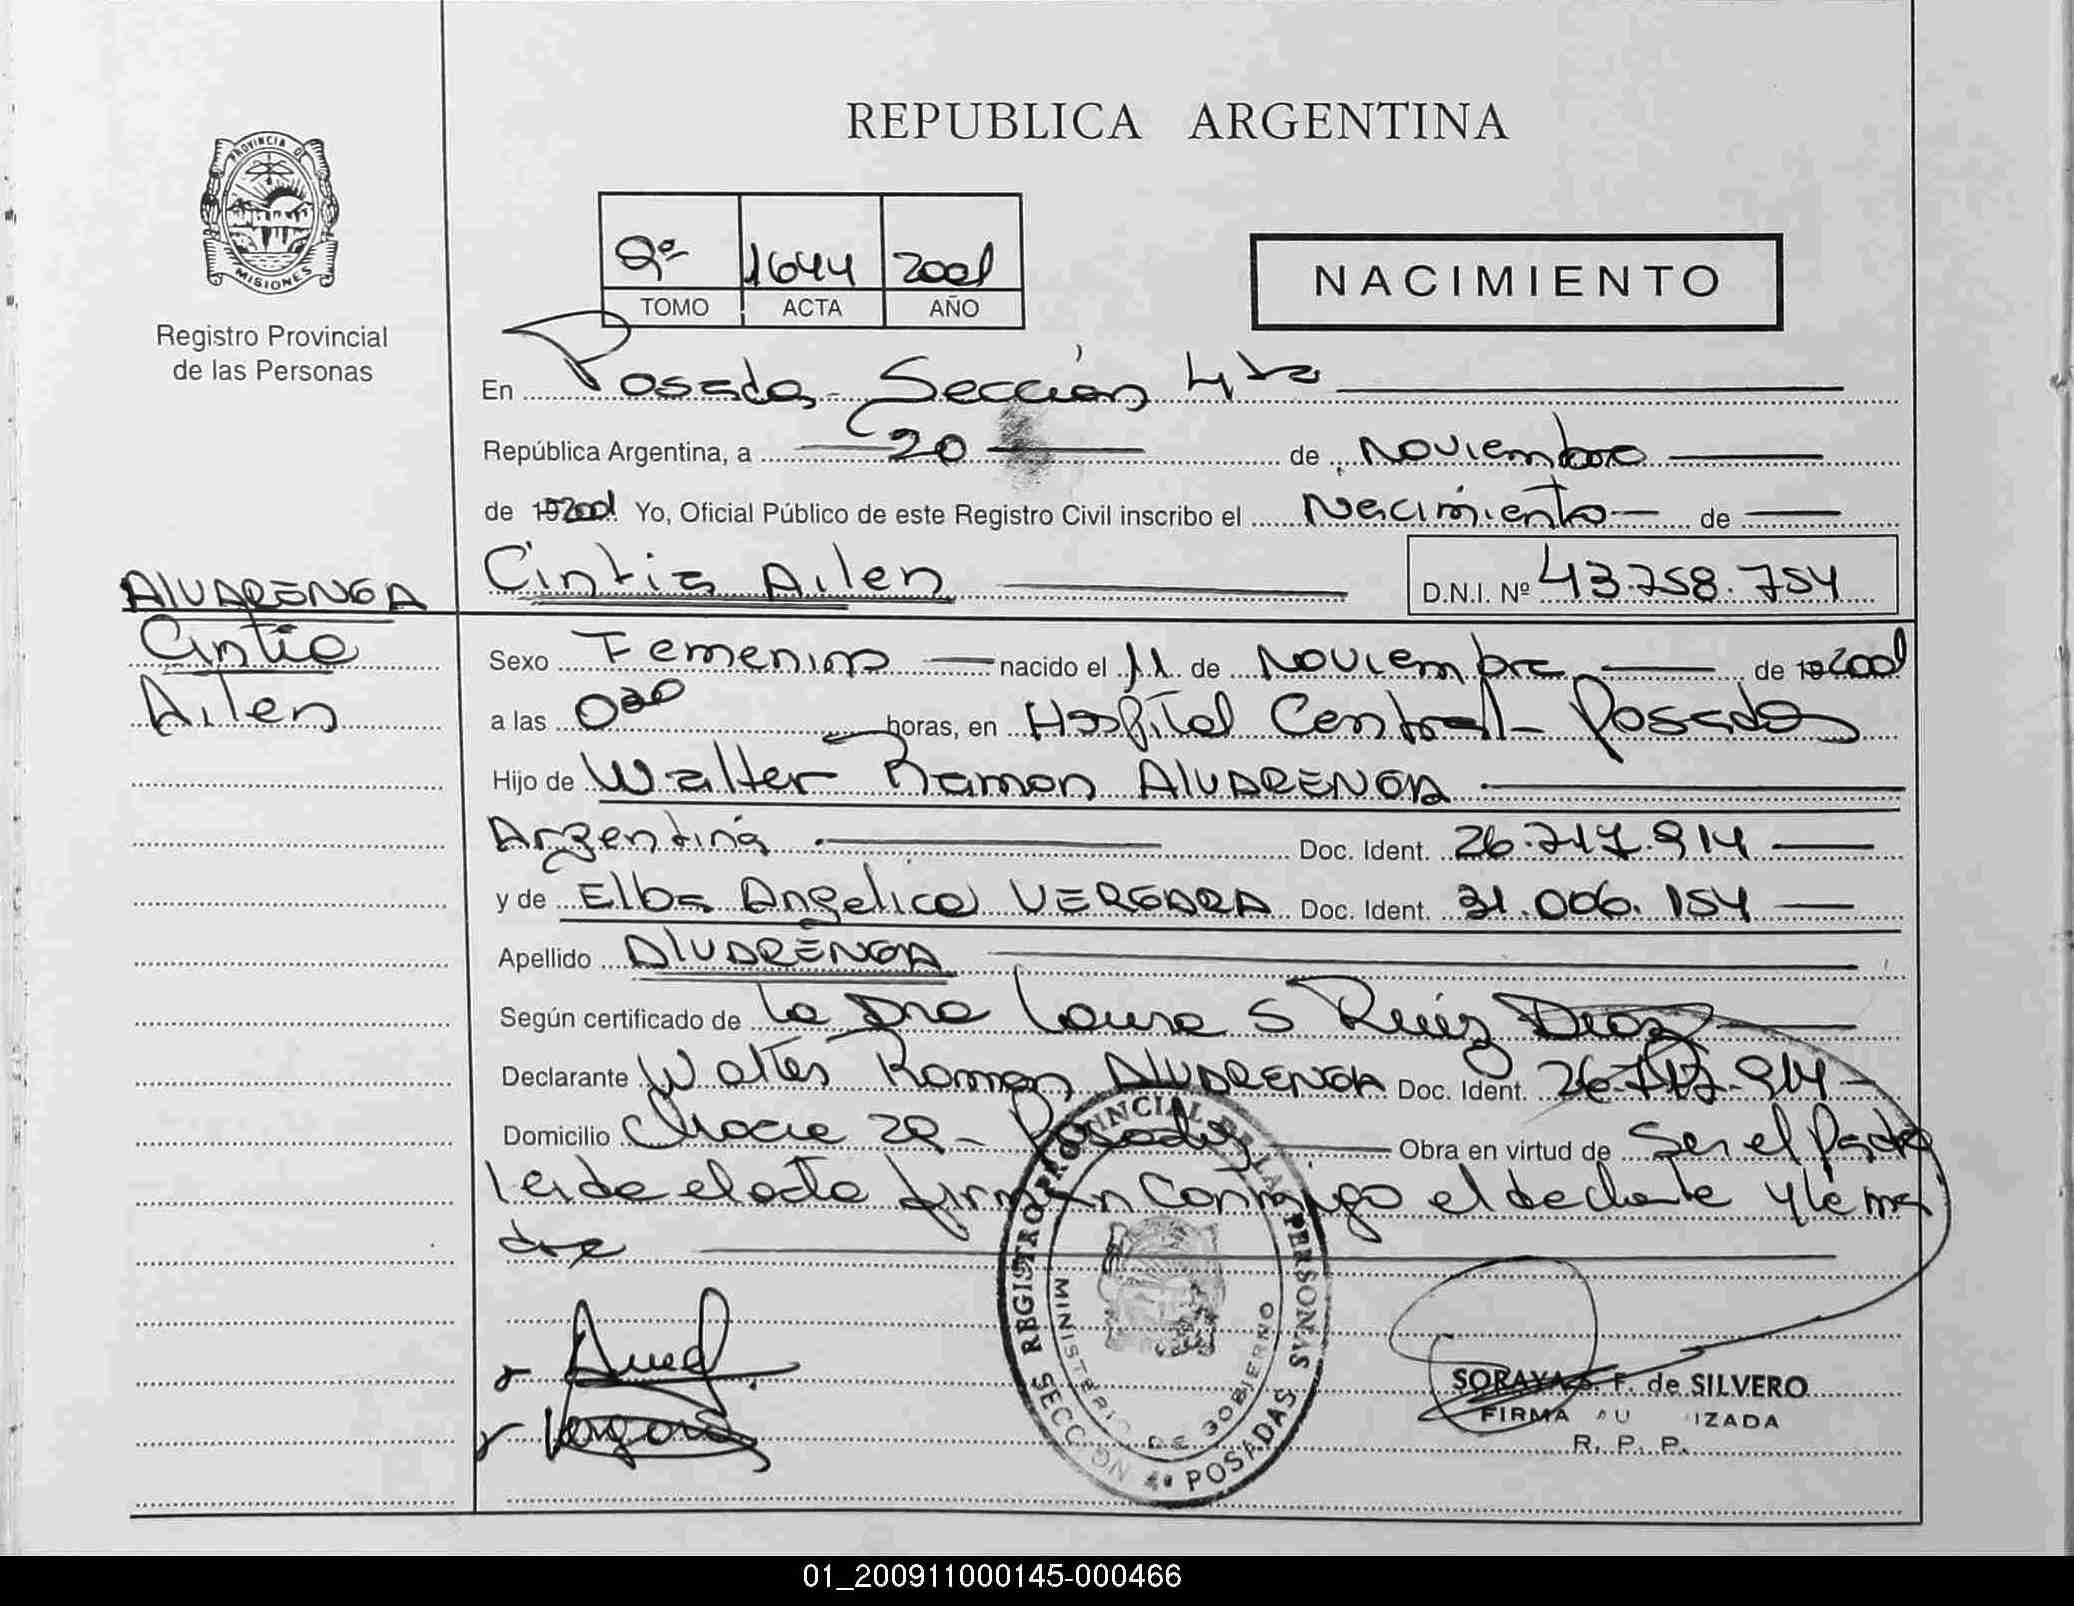 REPUBLICA ARGENTINA
PROVINCIA DE
MISIONES
Registro Provincial
de las Personas
2º 1644 2001
TOMO ACTA AÑO
NACIMIENTO
En Posadas - Sección 4ta
República Argentina, a 20 de Noviembre
de 2001 Yo, Oficial Público de este Registro Civil inscribo el Nacimiento de
Cintia Ailen D.N.I. Nº 43.758.754
ALVARENGA
Cintia
Ailen
Sexo Femenino nacido el 11 de Noviembre de 2001
a las 0:20 horas, en Hospital Central - Posadas
Hijo de Walter Ramon ALVARENGA
Argentina Doc. Ident. 26.717.914
y de Elba Angelica VERGARA Doc. Ident. 31.006.154
Apellido ALVARENGA
Según certificado de la Dra Laura S Ruiz Diaz
Declarante Walter Ramon ALVARENGA Doc. Ident. 26.717.914
Domicilio Chacra 29 - Posadas Obra en virtud de Ser el Padre
leida el acta firman conmigo el declarante y la ma
dre
REGISTRO PROVINCIAL DE LAS PERSONAS
MINISTERIO DE GOBIERNO
SECCION 4ª POSADAS
SORAYA F. de SILVERO
FIRMA AU IZADA
R. P. P.
01_200911000145-000466